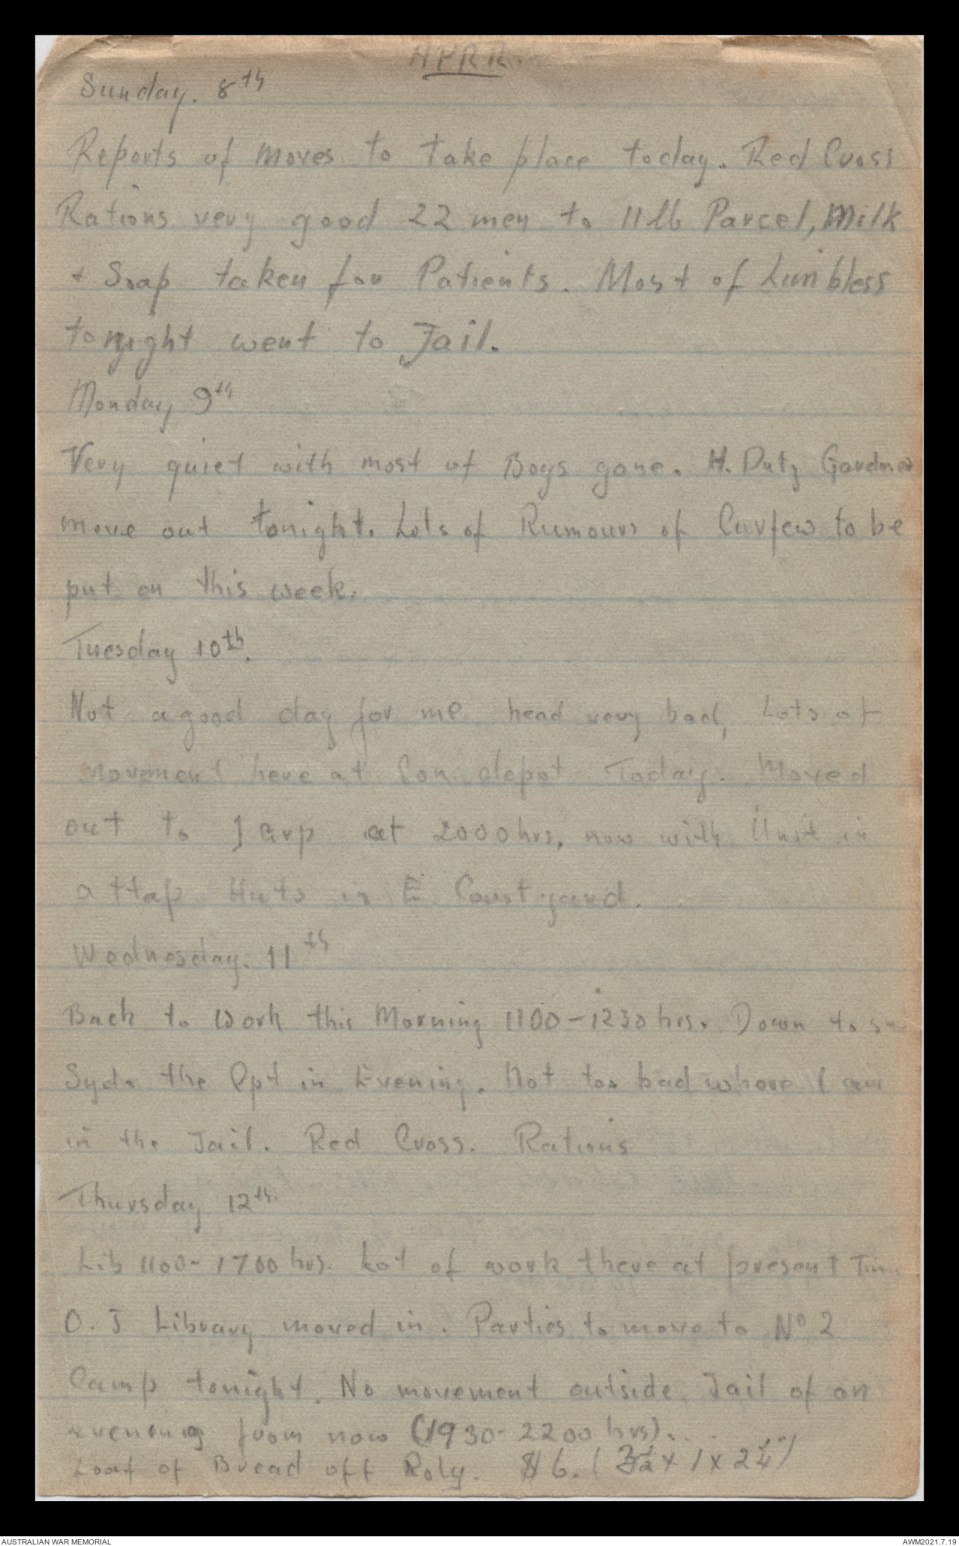 APRIL
Sunday. 8th
Reports of moves to take place today. Red Cross
Rations very good 22 men to 11 lb Parcel, Milk
+ Soap taken for Patients. Most of Limbless
tonight went to Jail.
Monday 9th
Very quiet with most of Boys gone. H. Duty Gardner
move out tonight. Lots of Rumours of Curfew to be
put on this week.
Tuesday 10th.
Not a good day for me head very bad, Lots of
movement here at Con. depot Today. Moved
out to J Grp at 2000 hrs, now with Unit in
attap Huts in E Courtyard.
Wednesday. 11th
Back to Work this Morning 1100-1230 hrs. Down to
Syd. the Opt in Evening. Not too bad where I am
in the Jail. Red Cross. Rations
Thursday 12th.
Lib 1100-1700 hrs. Lot of work there at present Time
O. J Library moved in. Parties to move to No 2
Camp tonight. No movement outside Jail of an
evening from now (1930-2200 hrs).
Loaf of Bread off Roly. $6. (3½ x 1 x 2¼")
AUSTRALIAN WAR MEMORIAL
AWM2021.7.19